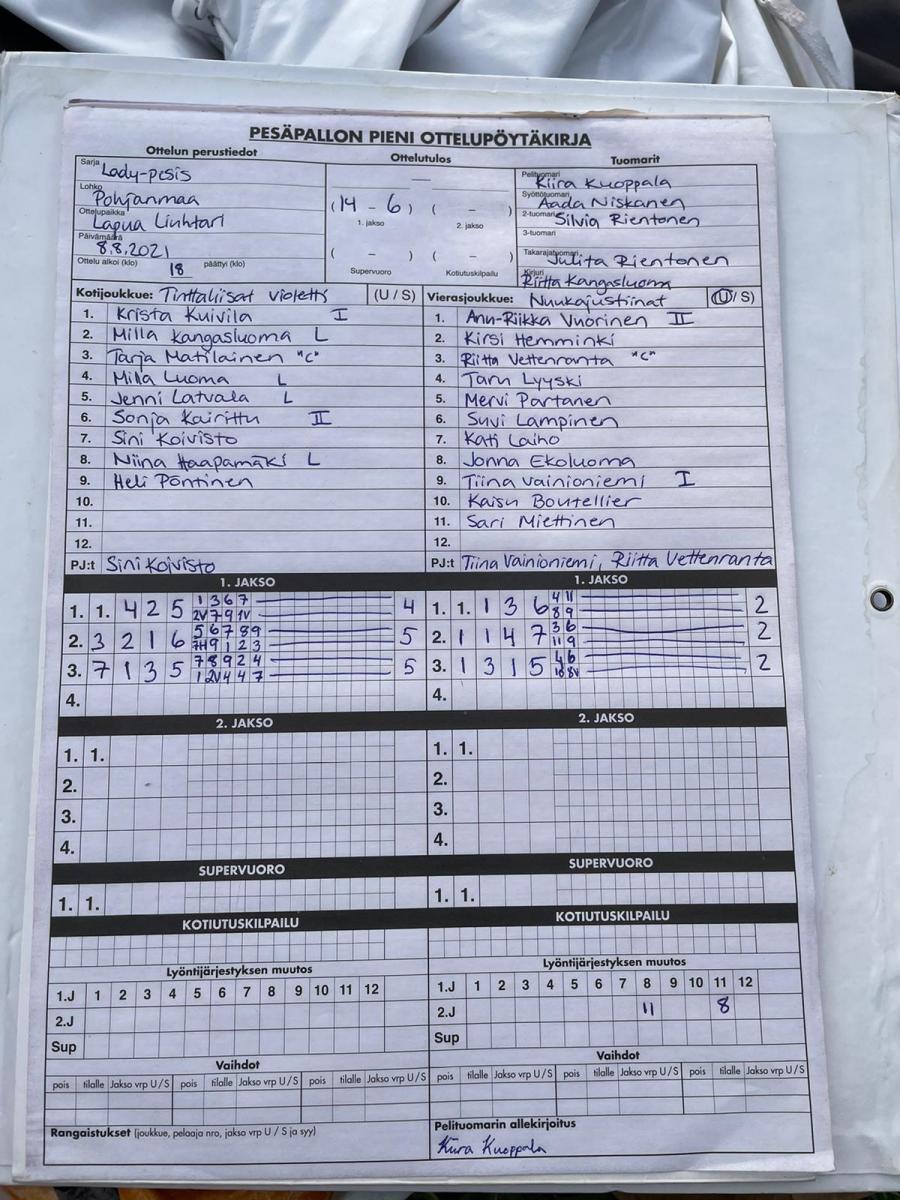 PESÄPALLON PIENI OTTELUPÖYTÄKIRJA
Ottelun perustiedot
Ottelutulos
Tuomarit
Sarja Lady-pesis
Lohko Pohjanmaa
Ottelupaikka Lapua Liuhtari
Päivämäärä 8.8.2021
Ottelu alkoi (klo) 18 päättyi (klo)
(14 - 6) ( - )
1. jakso 2. jakso
( - ) ( - )
Supervuoro Kotiutuskilpailu
Pelituomari Kiira Kuoppala
Syöttötuomari Aada Niskanen
2-tuomari Silvia Rientonen
3-tuomari
Takarajatuomari Julita Rientonen
Kirjuri Riitta Kangasluoma
Kotijoukkue: Tinttaliisat violetti (U / S)
1. Krista Kuivila I
2. Milla Kangasluoma L
3. Tarja Matilainen "C"
4. Milla Luoma L
5. Jenni Latvala L
6. Sonja Kairittu II
7. Sini Koivisto
8. Niina Haapamäki L
9. Heli Pöntinen
10.
11.
12.
PJ:t Sini Koivisto
Vierasjoukkue: Nuukajustiinat (U / S)
1. Ann-Riikka Vuorinen II
2. Kirsi Hemminki
3. Riitta Vettenranta "C"
4. Taru Lyyski
5. Mervi Partanen
6. Suvi Lampinen
7. Kati Laiho
8. Jonna Ekoluoma
9. Tiina Vainioniemi I
10. Kaisu Boutellier
11. Sari Miettinen
12.
PJ:t Tiina Vainioniemi, Riitta Vettenranta
1. JAKSO
1. 1. 4 2 5 1 3 6 7 4
2V 7 9 1V
2. 3 2 1 6 5 6 7 8 9 5
7H 9 1 2 3
3. 7 1 3 5 7 8 9 2 4 5
1 2V 4 4 7
4.
1. JAKSO
1. 1. 1 3 6 4 11 2
8 9
2. 1 1 4 7 3 6 2
11 9
3. 1 3 1 5 4 6 2
10 8V
4.
2. JAKSO
1. 1.
2.
3.
4.
2. JAKSO
1. 1.
2.
3.
4.
SUPERVUORO
1. 1.
SUPERVUORO
1. 1.
KOTIUTUSKILPAILU
KOTIUTUSKILPAILU
Lyöntijärjestyksen muutos
1.J 1 2 3 4 5 6 7 8 9 10 11 12
2.J
Sup
Lyöntijärjestyksen muutos
1.J 1 2 3 4 5 6 7 8 9 10 11 12
2.J 11 8
Sup
Vaihdot
pois tilalle Jakso vrp U / S pois tilalle Jakso vrp U / S pois tilalle Jakso vrp U / S
Vaihdot
pois tilalle Jakso vrp U / S pois tilalle Jakso vrp U / S pois tilalle Jakso vrp U / S
Rangaistukset (joukkue, pelaaja nro, jakso vrp U / S ja syy)
Pelituomarin allekirjoitus
Kiira Kuoppala